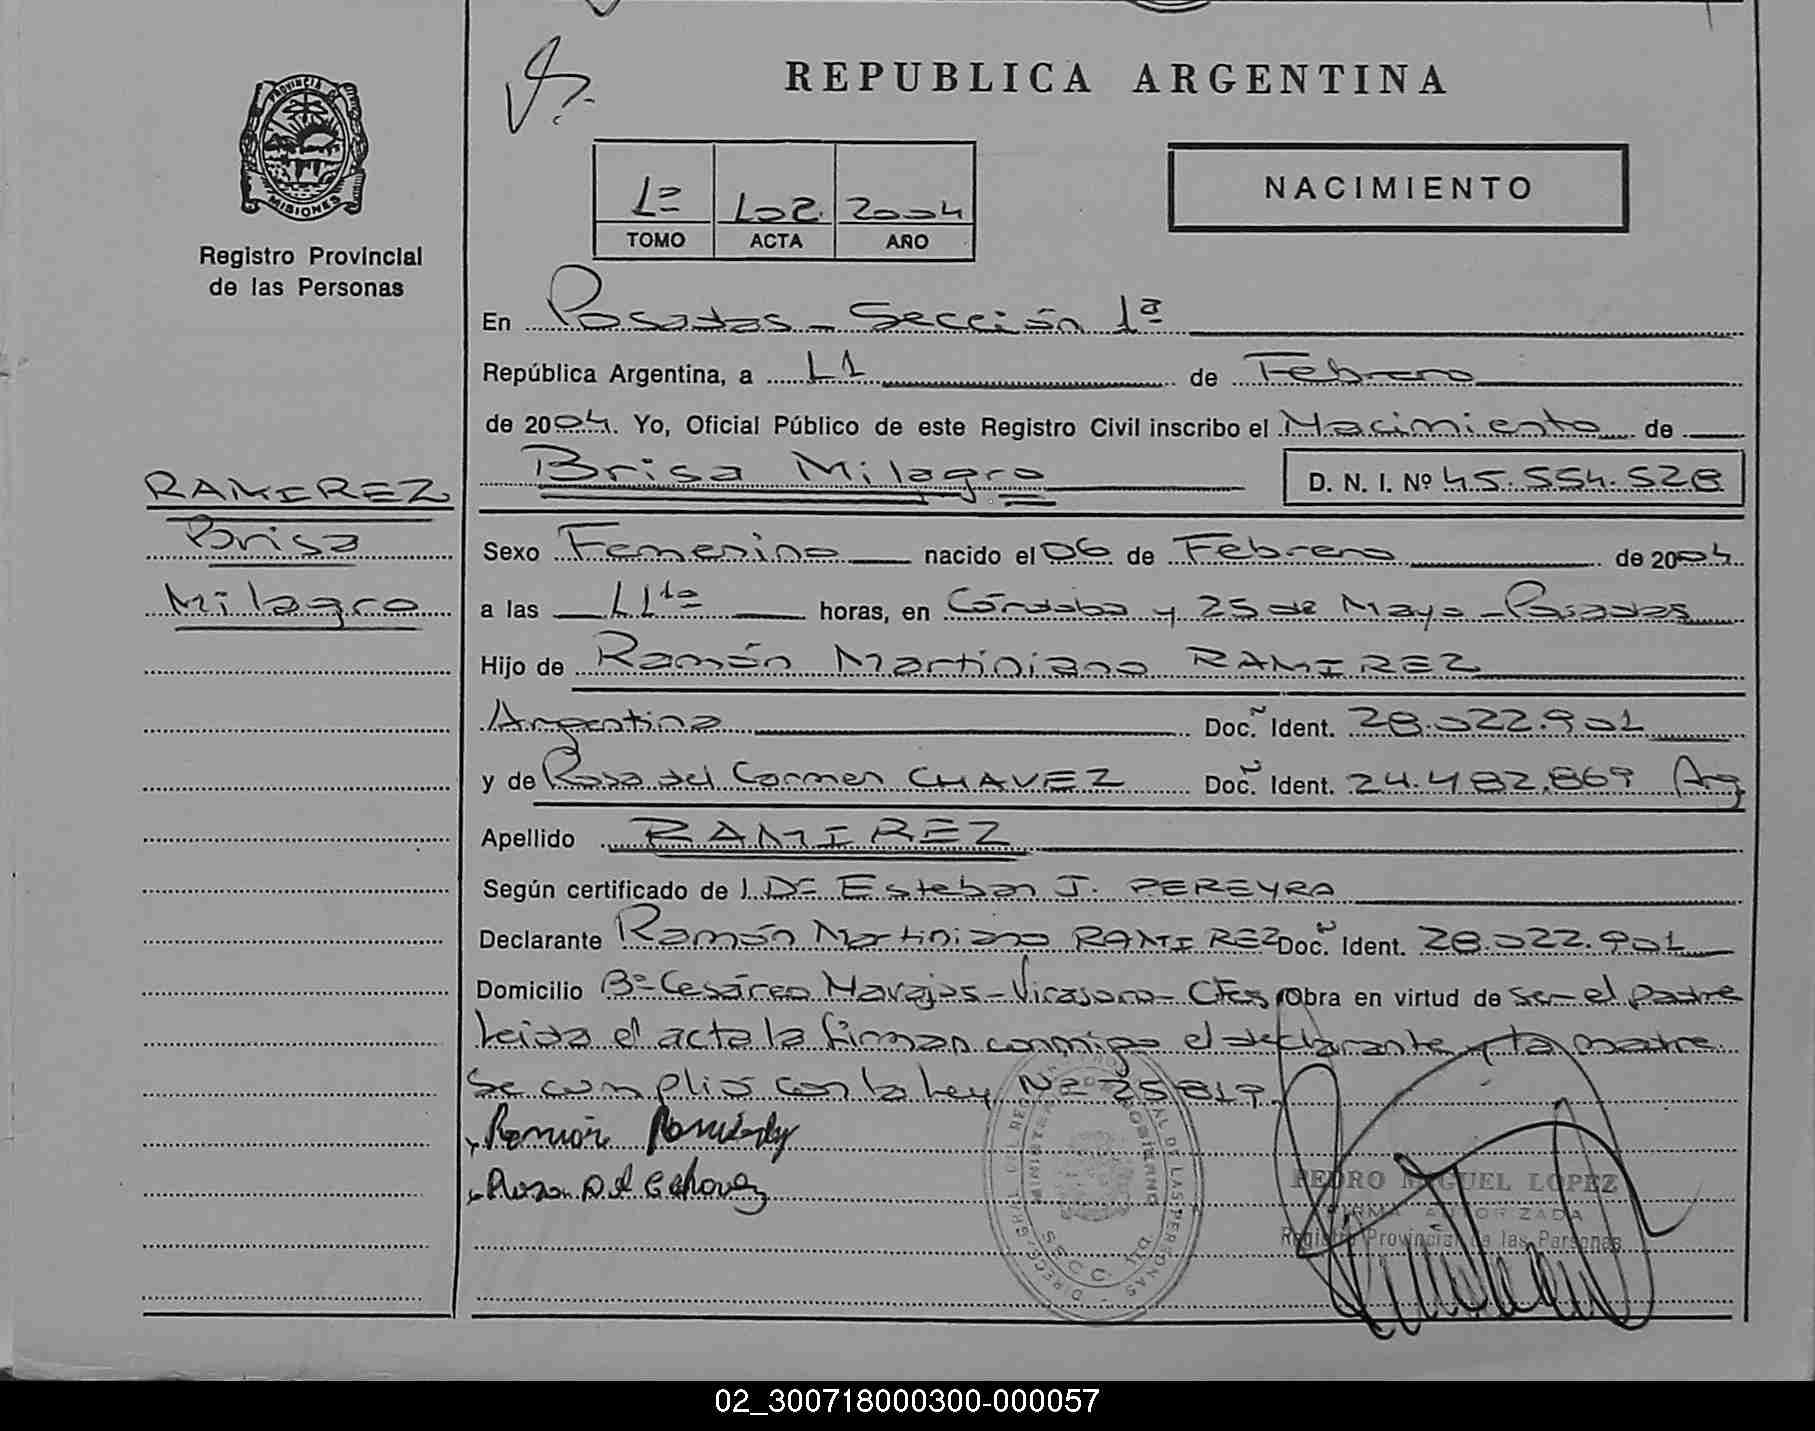 REPUBLICA ARGENTINA
PROVINCIA DE
MISIONES
Registro Provincial
de las Personas
1º 102 2004
TOMO ACTA AÑO
NACIMIENTO
En Posadas - Sección 1ª
República Argentina, a 11 de Febrero
de 2004. Yo, Oficial Público de este Registro Civil inscribo el Nacimiento de
Brisa Milagro D. N. I. Nº 45.554.528
RAMIREZ
Brisa
Milagro
Sexo Femenino nacido el 06 de Febrero de 2004
a las 11 horas, en Córdoba y 25 de Mayo - Posadas
Hijo de Ramón Martiniano RAMIREZ
Argentina Doc. Ident. 28.022.901
y de Rosa del Carmen CHAVEZ Doc. Ident. 24.482.869 Arg
Apellido RAMIREZ
Según certificado de Esteban J. PEREYRA
Declarante Ramón Martiniano RAMIREZ Doc. Ident. 28.022.901
Domicilio Bº Cesáreo Navajas - Virasoro - Ctes Obra en virtud de ser el padre
Leida el acta la firman conmigo el declarante y la madre.
Se cumplió con la Ley Nº 25.819.
PEDRO MIGUEL LOPEZ
FIRMA AUTORIZADA
Registro Provincial de las Personas
02_300718000300-000057